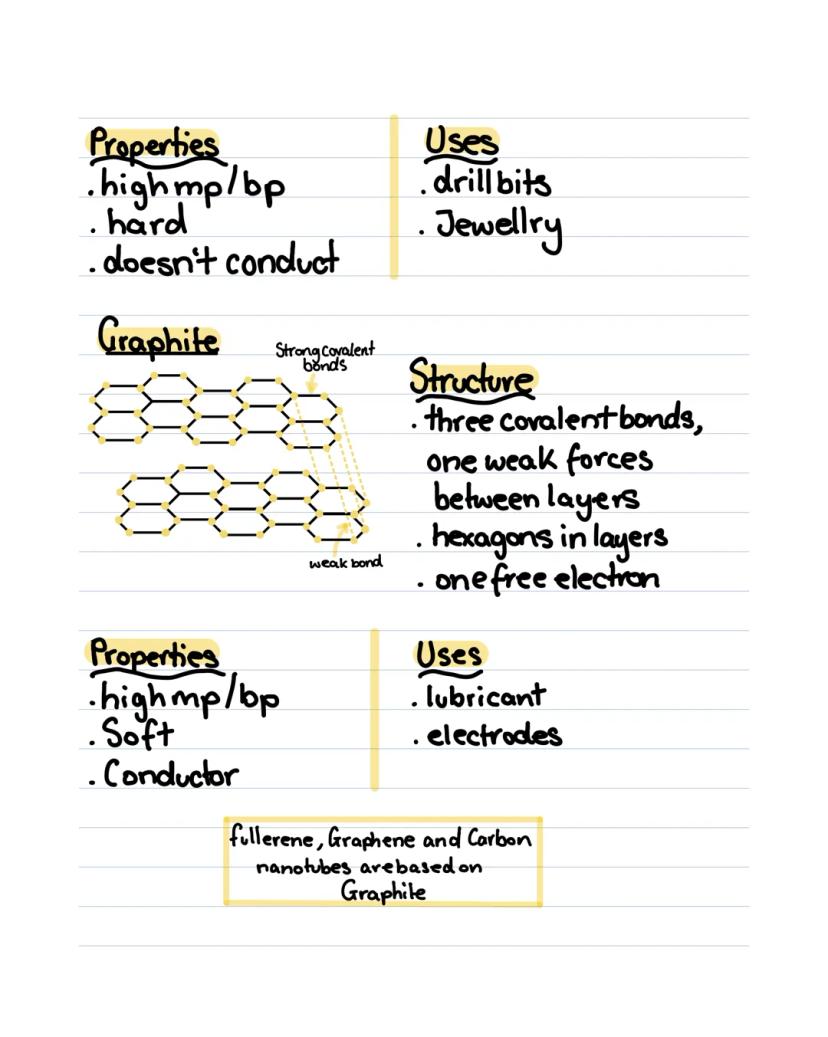 Properties
. high mp/bp
. hard
. doesn't conduct
Uses
. drill bits
. Jewellry
Graphite
Strong covalent
bonds
weak bond
Structure
. three covalent bonds,
one weak forces
between layers
. hexagons in layers
. one free electron
Properties
. high mp/bp
. Soft
. Conductor
Uses
. lubricant
. electrodes
fullerene, Graphene and Carbon
nanotubes are based on
Graphite